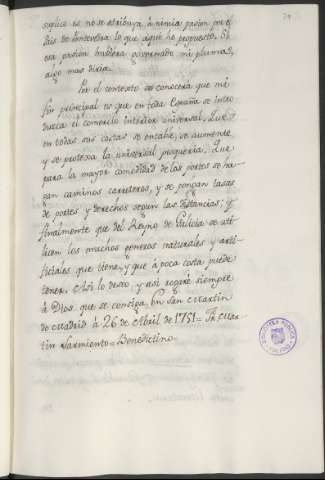 suplico es no se atribuya, á nimia pasion por el
Pais de Pontevedra lo que aqui he propuesto. Si
esa pasion hubiera governado mi pluma,
algo mas diria.
Por el contexto se conocerá que mi
fin principal es que en toda España se intro
duzca el comercio interior universal. Que
en todas sus costas se entable, se aumente
y se proteja la universal pesqueria. Que
para la mayor comodidad de los portes se ha-
gan caminos carreteros, y se pongan tasas
de portes y derechos segun las distancias; y
finalmente que del Reyno de Galicia se uti-
licen los muchos generos naturales y arti-
ficiales que tiene, y que á poca costa puede
tener. Asi lo deseo, y asi rogaré siempre
á Dios que se consiga. En San Martin
de Madrid á 26 de Abril de 1751= Fr. Mar-
tin Sarmiento= Benedictino.